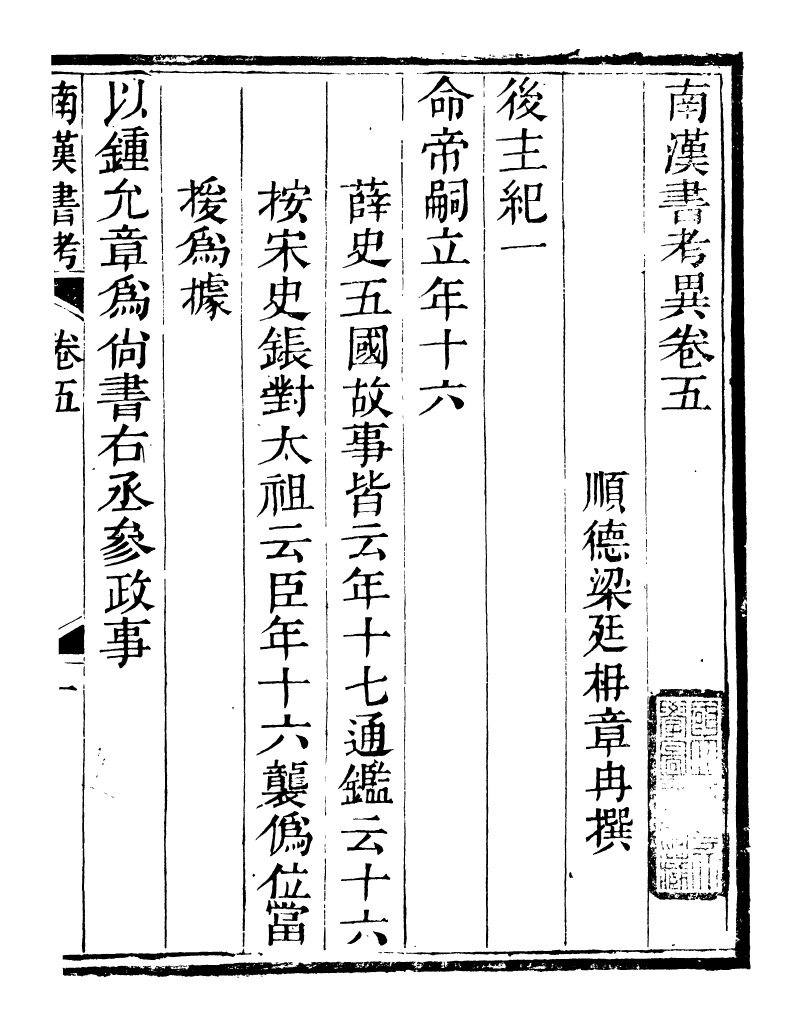 南漢書考異卷五
順德梁廷枏章冉撰
後主紀一
命帝嗣立年十六
薛史五國故事皆云年十七通鑑云十六
按宋史鋹對太祖云臣年十六襲僞位當
援爲據
以鍾允章爲尙書右丞參政事
南漢書考
卷五
一